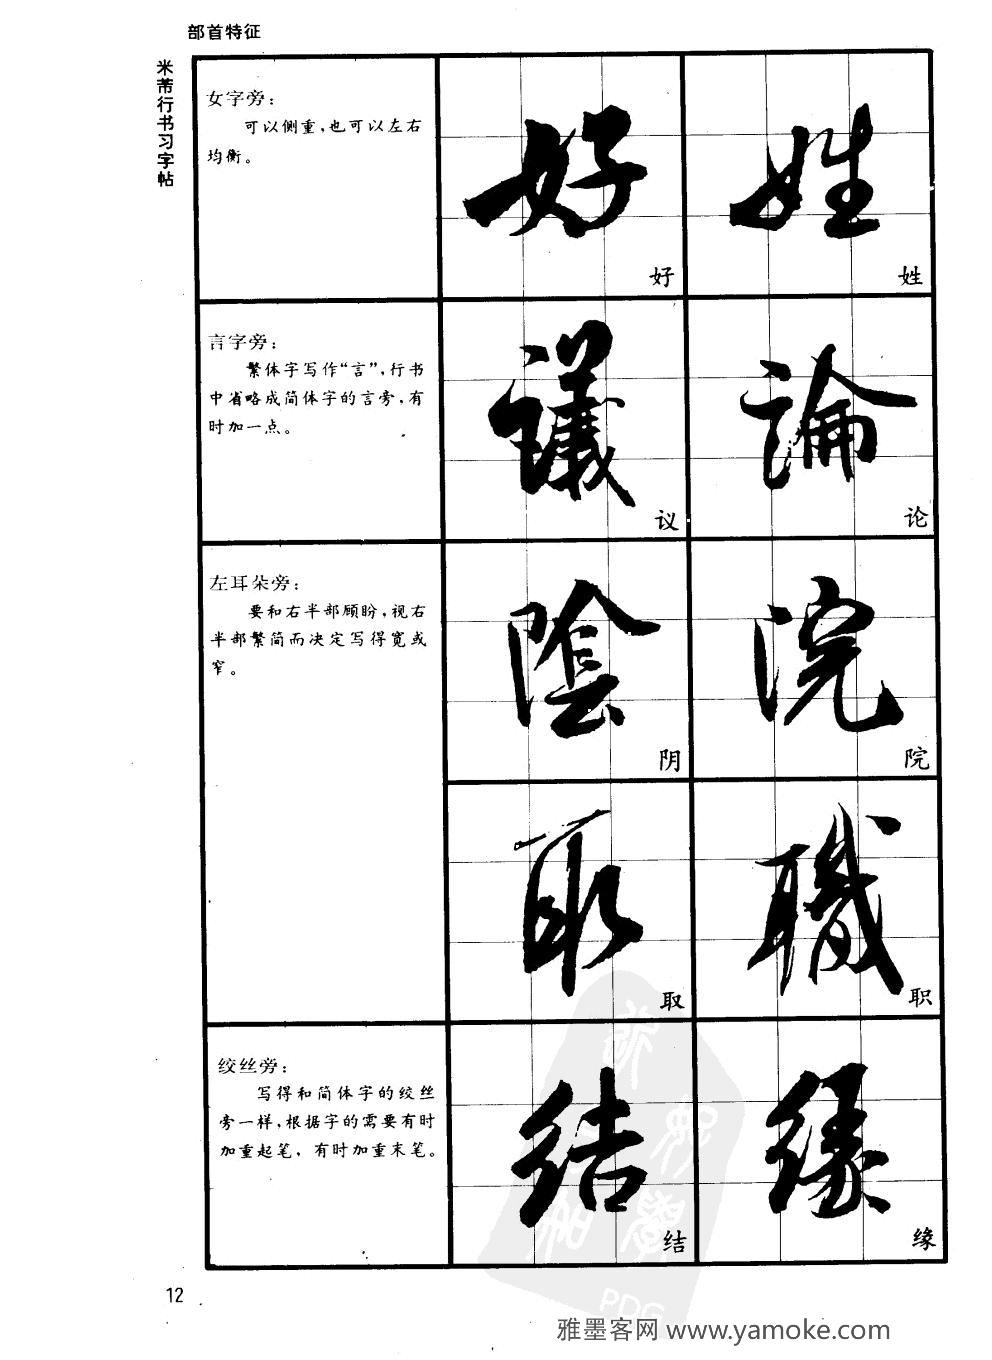 部首特征
米芾行书习字帖
女字旁：
可以侧重，也可以左右
均衡。
好
姓
好
姓
言字旁：
繁体字写作“言”，行书
中省略成简体字的言旁，有
时加一点。
議
論
议
论
左耳朵旁：
要和右半部顾盼，视右
半部繁简而决定写得宽或
窄。
陰
院
阴
院
取
職
取
职
绞丝旁：
写得和简体字的绞丝
旁一样，根据字的需要有时
加重起笔，有时加重末笔。
结
缘
结
缘
12
PDG
雅墨客网 www.yamoke.com